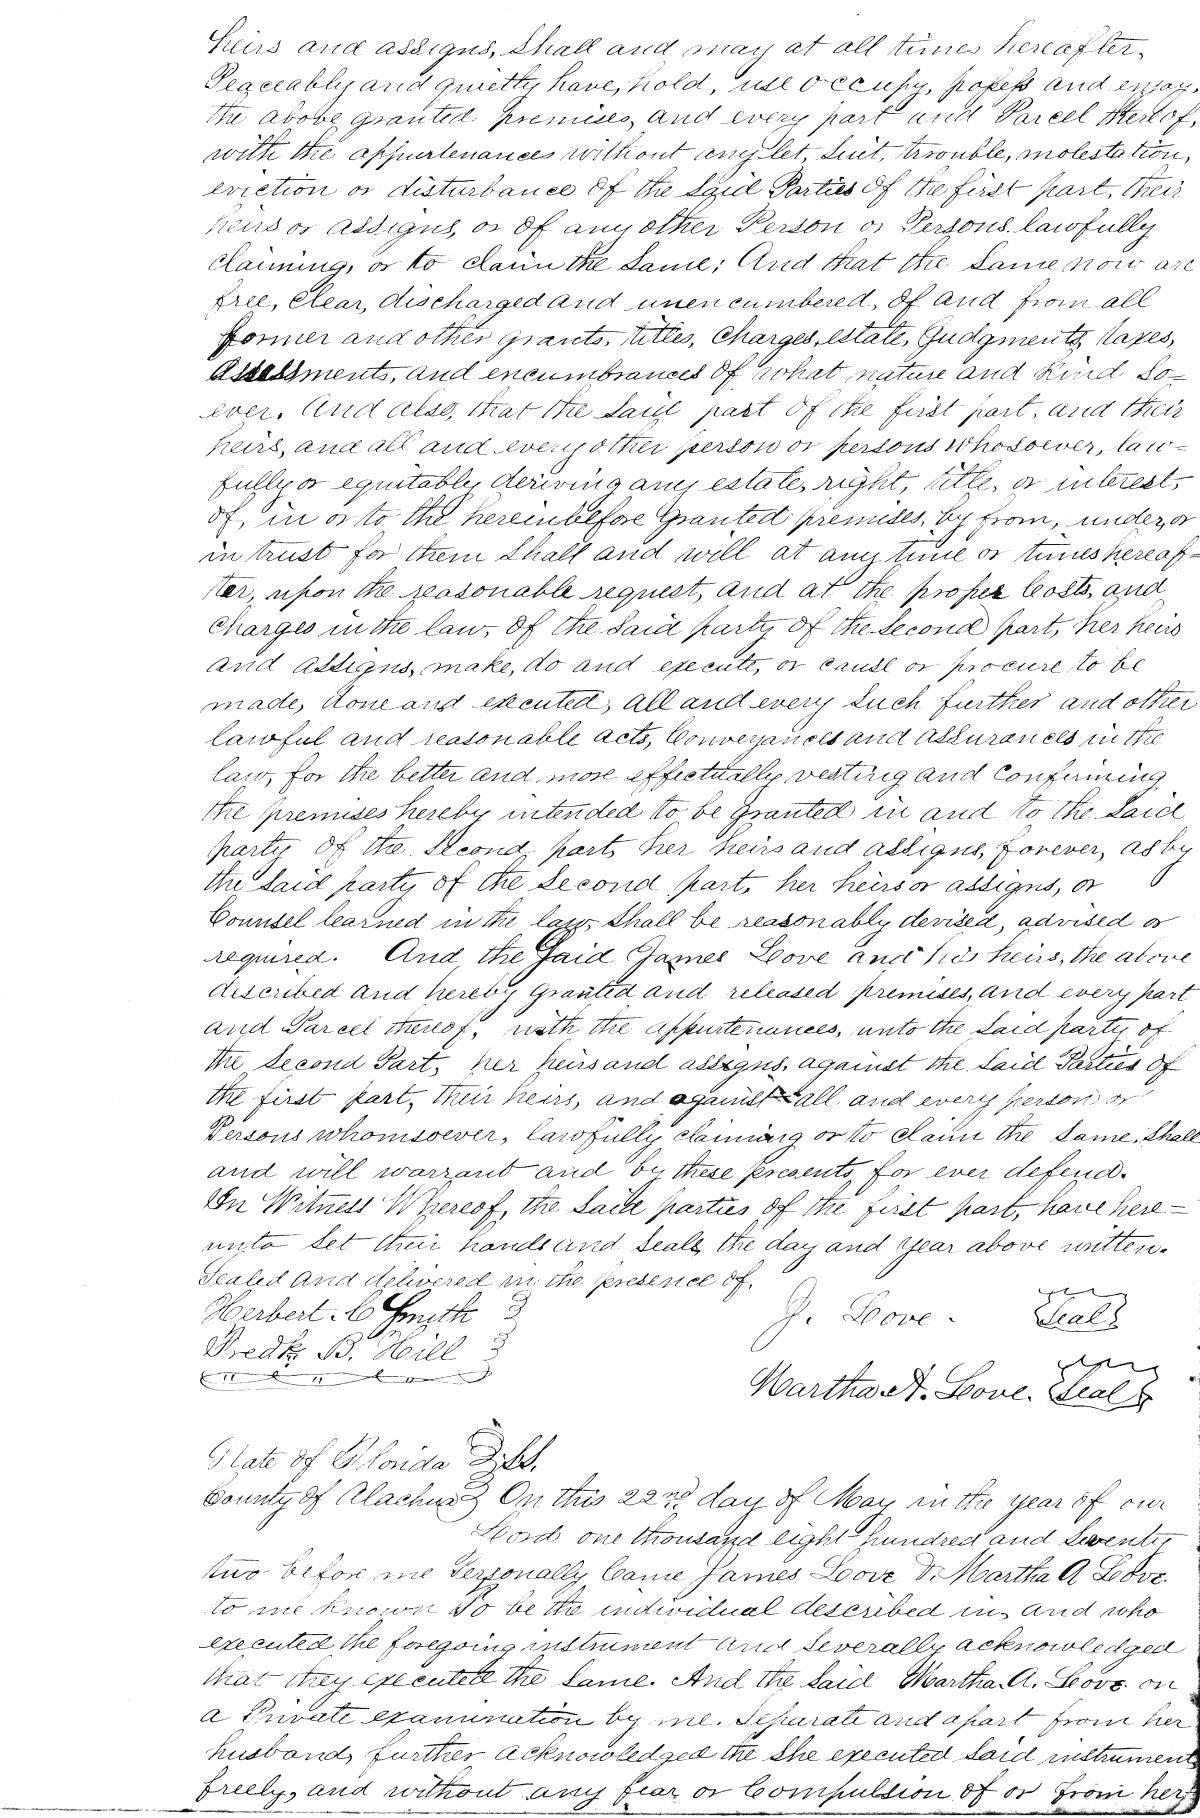 heirs and assigns, Shall and may at all times hereafter,
Peaceably and quietly have, hold, use occupy, possess and enjoy,
the above granted premises, and every part and Parcel thereof,
with the appurtenances without any let, suit, trouble, molestation,
eviction or disturbance of the Said Parties of the first part, their
heirs or assigns, or of any other Person or Persons lawfully
claiming, or to claim the Same; And that the Same now are
free, clear, discharged and unencumbered, of and from all
former and other grants, titles, charges, estate, Judgments, taxes,
Assessments, and encumbrances of what nature and kind So=
ever. And also, that the Said part of the first part, and their
heirs, and all and every other person or persons whosoever, law=
fully or equitably deriving any estate, right, title, or interest,
of, in or to the hereinbefore granted premises, by from, under, or
in trust for them Shall and will at any time or times hereaf=
ter, upon the reasonable request, and at the proper Costs, and
charges in the law, of the Said party of the Second part, her heirs
and assigns, make, do and execute, or cause or procure to be
made, done and executed, all and every Such further and other
lawful and reasonable acts, Conveyances and assurances in the
law, for the better and more effectually vesting and Confirming
the premises hereby intended to be granted in and to the Said
party of the Second part, her heirs and assigns, forever, as by
the Said party of the Second part, her heirs or assigns, or
Counsel learned in the law, Shall be reasonably devised, advised or
required. And the Said James Love and his heirs, the above
described and hereby granted and released premises, and every part
and Parcel thereof, with the appurtenances, unto the Said party of
the Second Part, her heirs and assigns, against the Said Parties of
the first part, their heirs, and against all and every person or
Persons whomsoever, lawfully claiming or to claim the Same, Shall
and will warrant and by these presents, for ever defend.
In Witness Whereof, the Said parties of the first part, have here=
unto Set their hands and Seals the day and year above written.
Sealed and delivered in the presence of,
Herbert. C Smith J. Love. Seal
Fredk. B. Hill
Martha A. Love. Seal
State of Florida S.S.
County of Alachua On this 22nd day of May in the year of our
Lord one thousand eight hundred and Seventy
two before me Personally Came James Love & Martha A Love.
to me known To be the individual described in, and who
executed the foregoing instrument and Severally acknowledged
that they executed the Same. And the Said Martha. A. Love on
a Private examination by me. Separate and apart from her
husband, further acknowledged the She executed Said instrument
freely, and without any fear or Compulsion of or from her